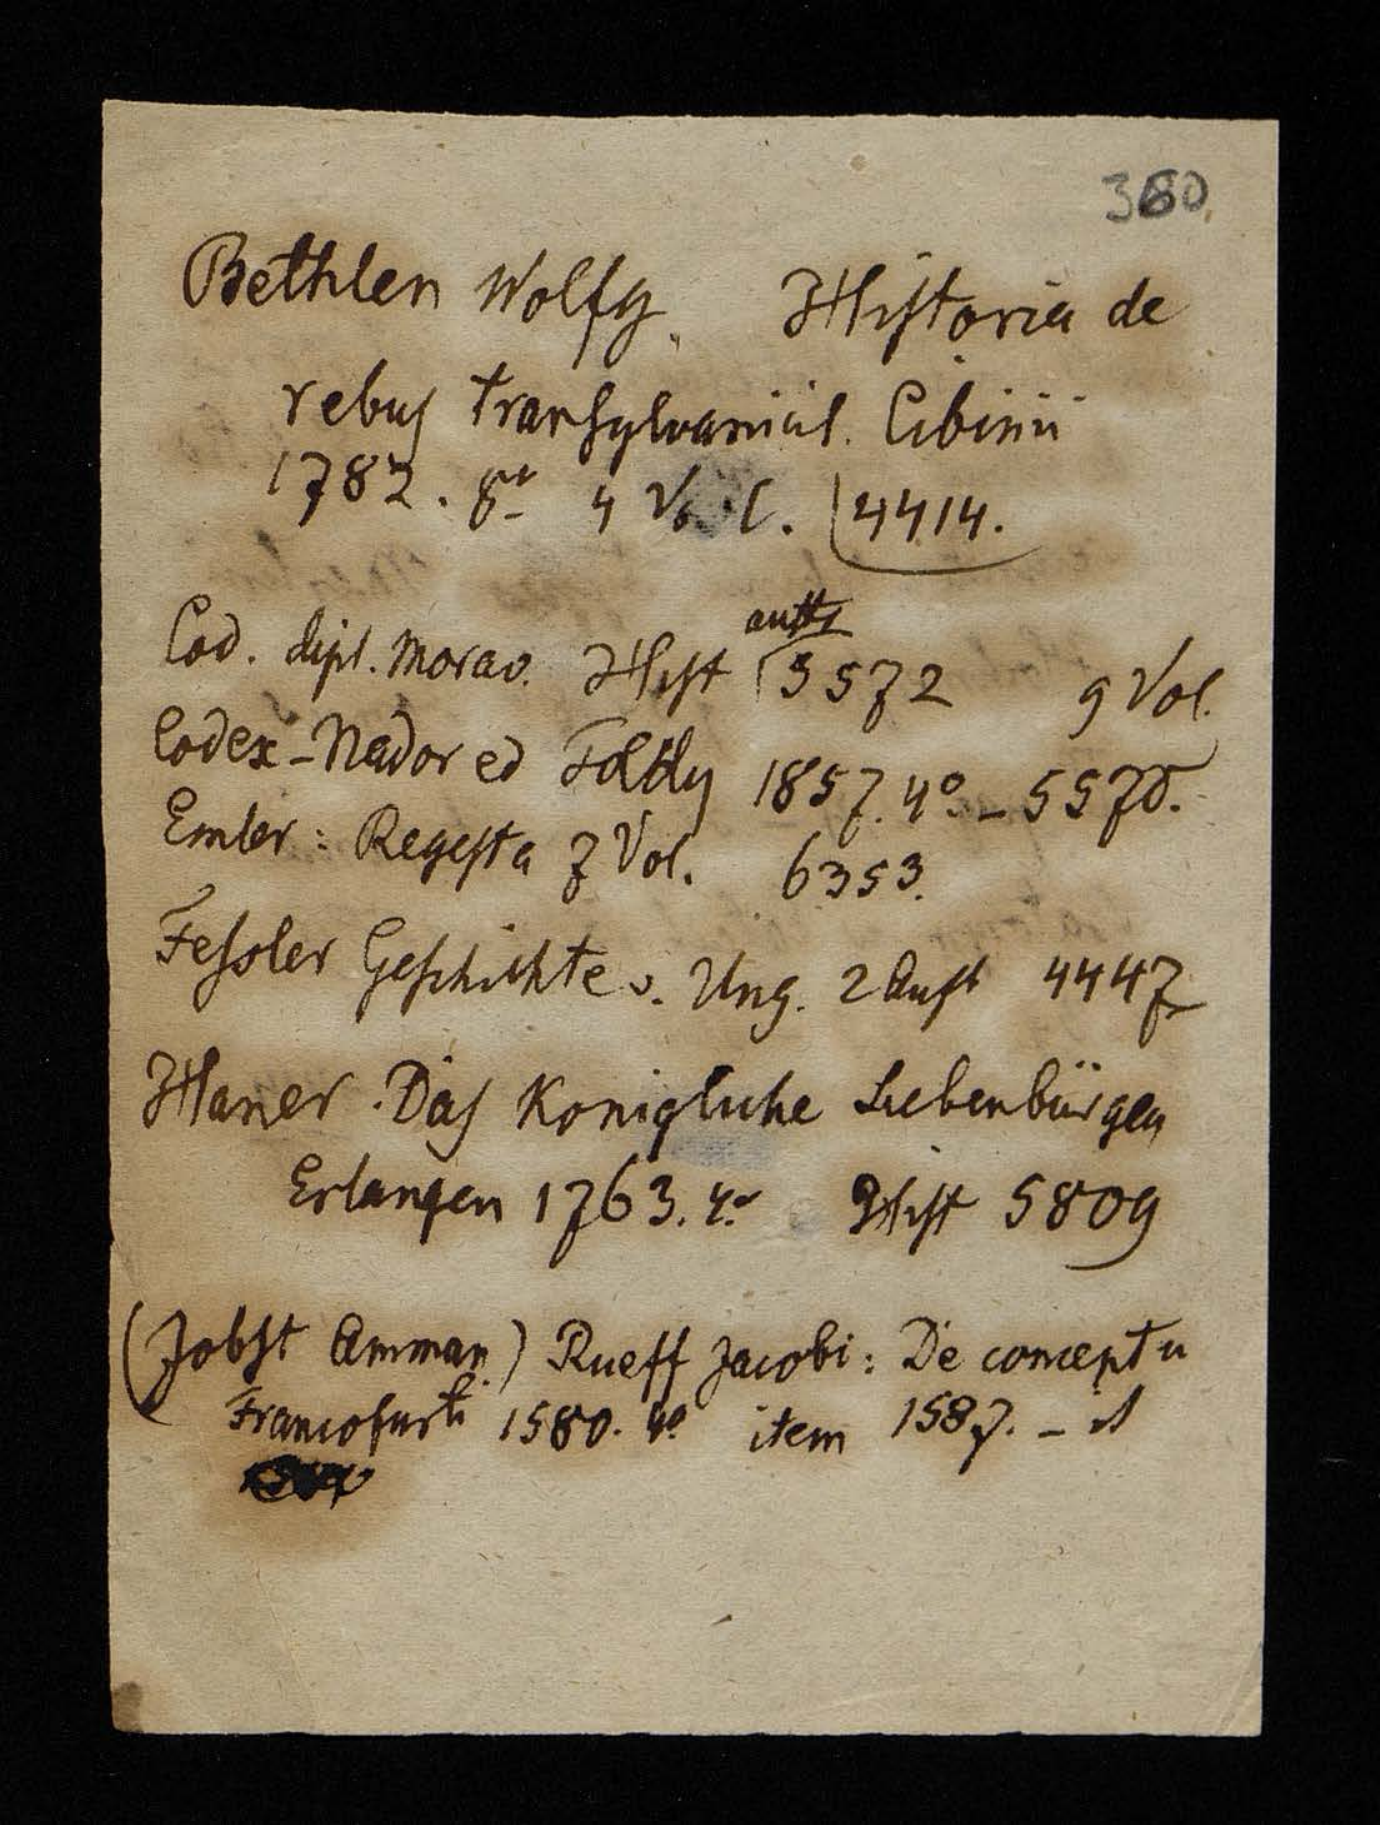 360
Bethlen Wolfg. Historia de
rebus transylvanicis. Cibinii
1782. 8º 4 Vol. 4414.
antts
Cod. dipl. Morav. Hist 3572 9 Vol.
Codex-Nador ed Toldy 1857. 4º - 5578.
Emler: Regesta 7 Vol. 6353.
Fessler Geschichte v. Ung. 2 Aufl 4447
Haner. Das Konigliche Siebenbürgen
Erlangen 1763. 4º Hist 5809
(Jobst Amman.) Rueff Jacobi: De conceptu
Francofurti 1580. 4º item 1587. -